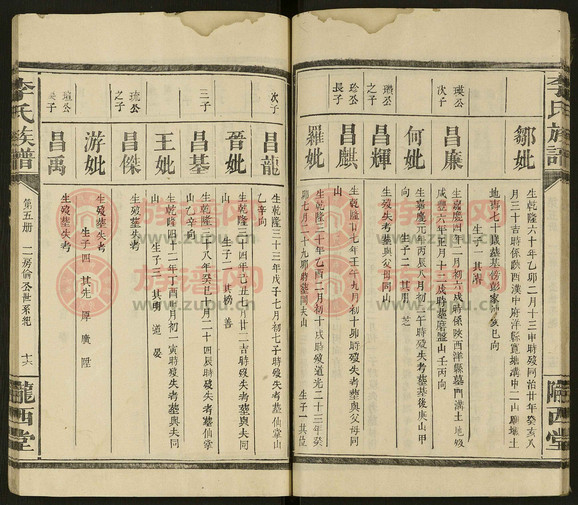 李氏族譜
隴西堂
鄒妣
生乾隆六十年乙卯二月十三申時歿同治廿年癸亥八
月三十吉時係陝西漢中府洋縣
生子一 其
瑛公
次子
昌廉
生嘉慶四年二月初六戌時係陝西洋縣墓門溝土地
咸豐六年正月十三戌時墓磨盤山壬丙向
何妣
生嘉慶元年丙辰八月初三午時歿失考墓墓後庚山甲
向 生子二 其月 芝
瓚公
之子
昌輝
生歿失考墓與父母同山
珍公
長子
昌麒
生乾隆廿七年壬午九月初十卯時歿失考墓與父母同
山
羅妣
生乾隆三十年乙酉二月初十戌時歿道光二十三年癸
卯七月二十九卯時墓同夫山 生子一 其位
次子
昌龍
生乾隆三十三年戊子七月初七子時歿失考墓仙掌山
乙辛向
晉妣
生乾隆三十四年己丑七月廿二吉時歿失考墓與夫同
山 生子二 其榜 善
三子
昌基
生乾隆三十八年癸巳十月二十四辰時歿失考墓仙掌
山乙辛向
王妣
生乾隆四十二年丁酉七月初一寅時歿失考墓與夫同
山 生子三 其勇 道 晏
琉公
之子
昌傑
生歿失考
游妣
生歿失考
生子四 其先 厚 廣 陞
瓏公
長子
昌禹
生歿失考
李氏族譜
第五册
二房倫公世系紀
隴西堂